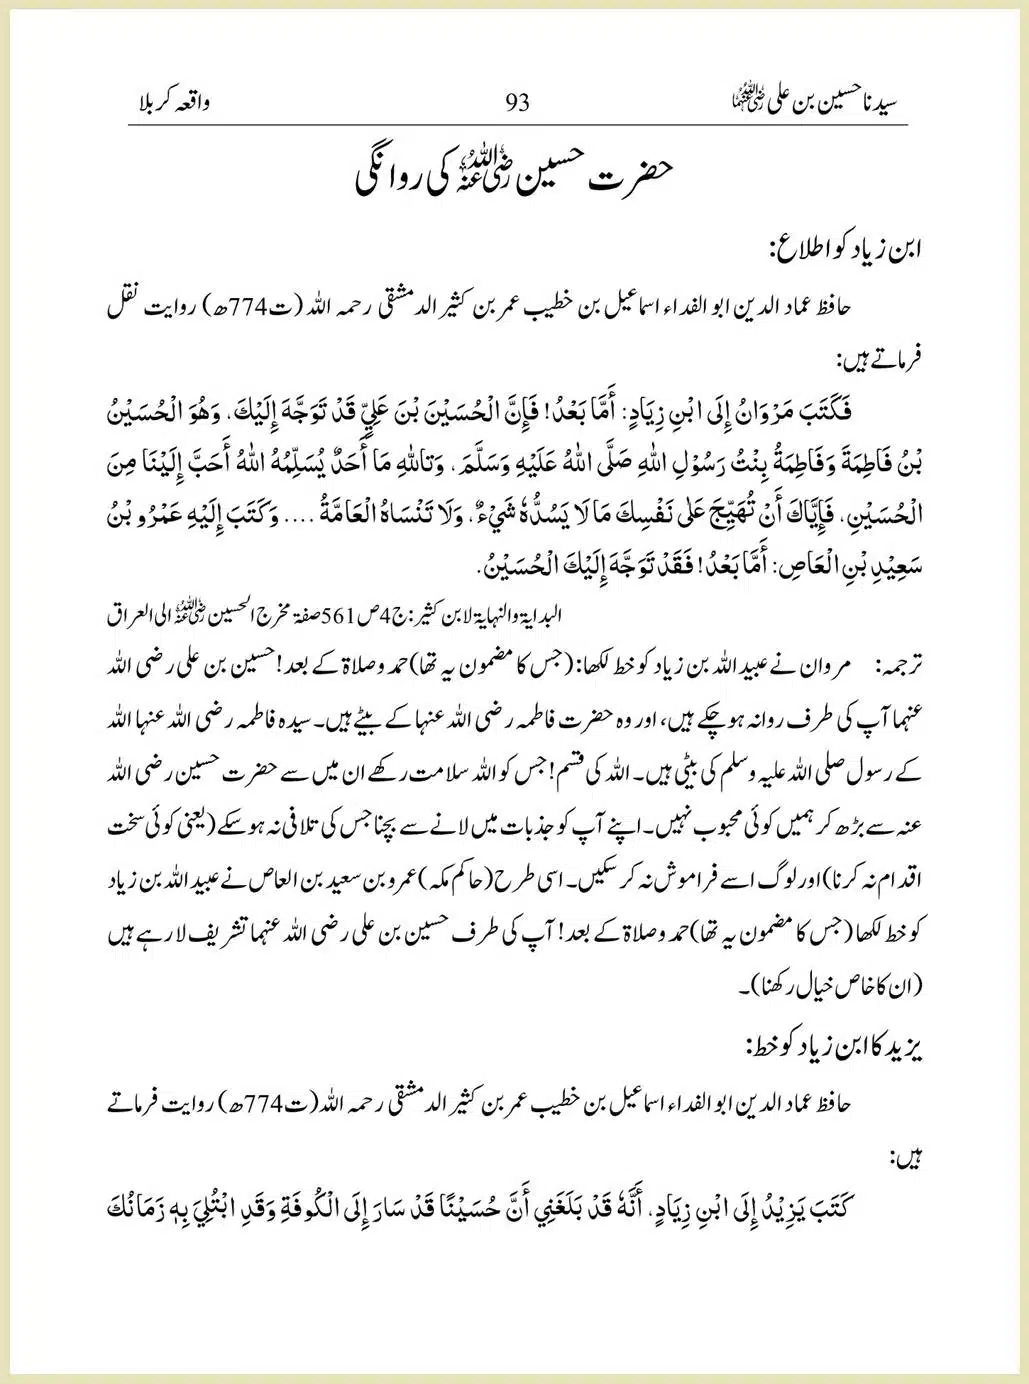 سیدنا حسین بن علی رضی اللہ عنہما 93 واقعہ کربلا
حضرت حسین رضی اللہ عنہ کی روانگی
ابن زیاد کو اطلاع:
حافظ عماد الدین ابو الفداء اسماعیل بن خطیب عمر بن کثیر الدمشقی رحمہ اللہ (ت774ھ) روایت نقل
فرماتے ہیں:
فَكَتَبَ مَرْوَانُ إِلَى ابْنِ زِيَادٍ: أَمَّا بَعْدُ! فَإِنَّ الْحُسَيْنَ بْنَ عَلِيٍّ قَدْ تَوَجَّهَ إِلَيْكَ، وَهُوَ الْحُسَيْنُ
بْنُ فَاطِمَةَ وَفَاطِمَةُ بِنْتُ رَسُوْلِ اللهِ صَلَّى اللهُ عَلَيْهِ وَسَلَّمَ، وَتاللهِ مَا أَحَدٌ يُسَلِّمُهُ اللهُ أَحَبَّ إِلَيْنَا مِنَ
الْحُسَيْنِ، فَإِيَّاكَ أَنْ تُهَيِّجَ عَلٰى نَفْسِكَ مَا لَا يَسُدُّهٗ شَيْءٌ، وَلَا تَنْسَاهُ الْعَامَّةُ .... وَكَتَبَ إِلَيْهِ عَمْرُو بْنُ
سَعِيْدِ بْنِ الْعَاصِ: أَمَّا بَعْدُ! فَقَدْ تَوَجَّهَ إِلَيْكَ الْحُسَيْنُ.
البدایۃ والنہایۃ لابن کثیر: ج4ص561صفۃ مخرج الحسین رضی اللہ عنہ الی العراق
ترجمہ: مروان نے عبید اللہ بن زیاد کو خط لکھا: (جس کا مضمون یہ تھا) حمد وصلاۃ کے بعد! حسین بن علی رضی اللہ
عنہما آپ کی طرف روانہ ہو چکے ہیں، اور وہ حضرت فاطمہ رضی اللہ عنہا کے بیٹے ہیں۔ سیدہ فاطمہ رضی اللہ عنہا اللہ
کے رسول صلی اللہ علیہ وسلم کی بیٹی ہیں۔ اللہ کی قسم! جس کو اللہ سلامت رکھے ان میں سے حضرت حسین رضی اللہ
عنہ سے بڑھ کر ہمیں کوئی محبوب نہیں۔ اپنے آپ کو جذبات میں لانے سے بچنا جس کی تلافی نہ ہو سکے (یعنی کوئی سخت
اقدام نہ کرنا) اور لوگ اسے فراموش نہ کر سکیں۔ اسی طرح (حاکم مکہ) عمرو بن سعید بن العاص نے عبید اللہ بن زیاد
کو خط لکھا (جس کا مضمون یہ تھا) حمد وصلاۃ کے بعد! آپ کی طرف حسین بن علی رضی اللہ عنہما تشریف لا رہے ہیں
(ان کا خاص خیال رکھنا)۔
یزید کا ابن زیاد کو خط:
حافظ عماد الدین ابو الفداء اسماعیل بن خطیب عمر بن کثیر الدمشقی رحمہ اللہ (ت774ھ) روایت فرماتے
ہیں:
كَتَبَ يَزِيْدُ إِلَى ابْنِ زِيَادٍ، أَنَّهٗ قَدْ بَلَغَنِي أَنَّ حُسَيْنًا قَدْ سَارَ إِلَى الْكُوفَةِ وَقَدِ ابْتُلِيَ بِهٖ زَمَانُكَ